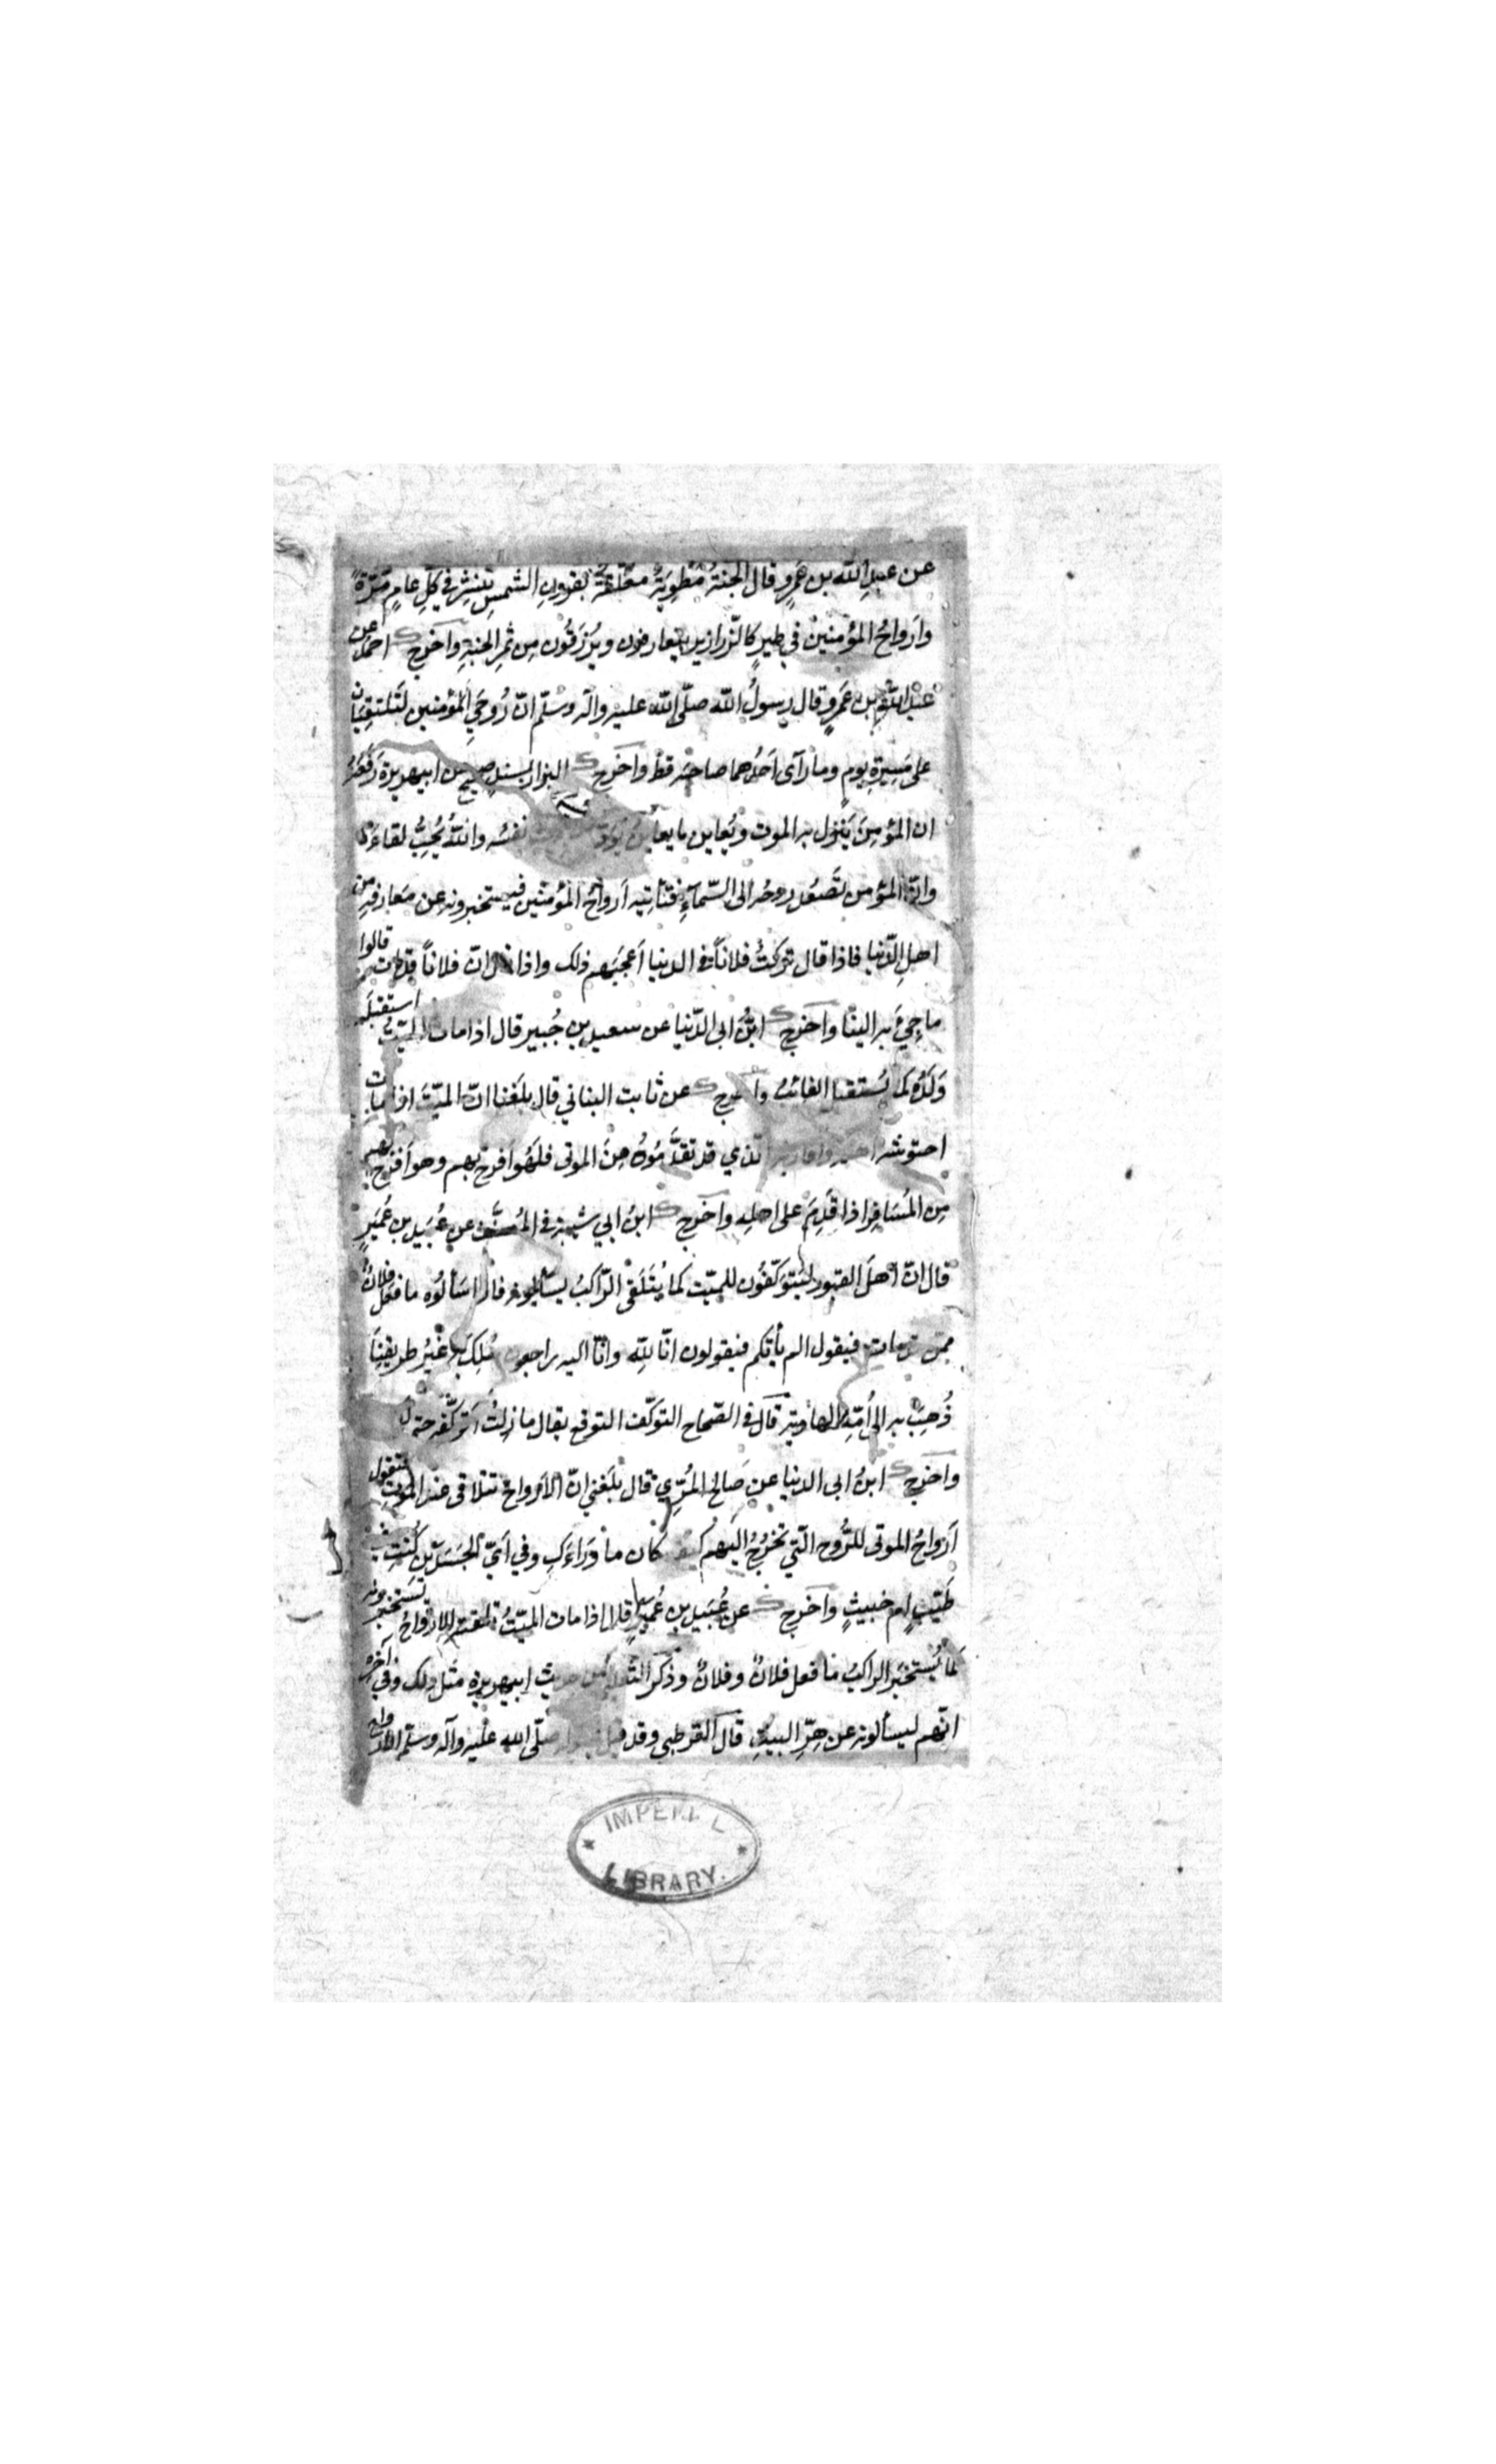 عن عبدِ الله بن عَمرٍو قال الجنةُ مَطوِيَةٌ معلّقةٌ بقرونِ الشمسِ تنشر في كلِّ عامٍ مَرّةً
وأَرواحُ المؤمنينَ في طيرٍ كالزّرازير يتعارفون ويُرزَقُون مِن ثمرِ الجنةِ وأخرج احمد عن
عبدِ الله بن عَمرٍو قال رسولُ الله صلّى الله عليه وآله وسلّم انّ رُوحَيِ المؤمنين لَتلتقِيَانِ
على مَسِيرَةِ يومٍ وما رآى اَحَدُهما صاحبَه قطّ وأخرج البزار بسندٍ صحيحٍ عن ابيهريرة رَفَعَهُ
ان المؤمِنَ يَنزِل به الموت ويُعاين ما يعاين يَوَدّ نفسُه واللهُ يُحِبُّ لقاءَهُ
وانّ المؤمن تَصعَد روحُه الى السّمآءِ فتأتيه اَرواحُ المؤمنين فيستخبرونه عن مَعارفِهِ من
اهلِ الدّنيا فاذا قال تركتُ فلاناً في الدنيا اَعجَبَهم ذلك واذا قال انّ فلاناً قد مات قالوا
ما جِيءَ به الينا وأخرج ابنُ ابى الدّنيا عن سعيد بن جُبير قال اذا مات الميّتُ استقبلَه
وَلَدُه كما يُستقبل الغائبُ وأخرج عن ثابت البناني قال بلَغنا انّ الميّتَ اذا مات
احتوشه اهله واقاربه الذي قد تقدَّمُوهُ مِنَ الموتى فلَهُوَ اَفرح بهم وهو اَفرَح بهم
مِن المُسَافِرِ اذا قَدِمَ على اهلِه وأخرج ابنُ ابي شيبة في المُصنَّف عن عُبَيد بن عُمَيرٍ
قال انّ اهلَ القبور ليَتوَكّفُون للميّت كما يُتَلَقّى الرّاكبُ يسألونه فاذا سَألُوه ما فعَل فلانٌ
ممّن قد مات فيقول الم يأتكم فيقولون انّا لله وانّا اليه راجعون سُلِكَ به غَيرُ طريقِنَا
ذُهِبَ به الى أمّهِ الهاوية قال في الصّحاح التوكّف التوقع يقال ما زِلتُ اَتوكّفه حتى
وأخرج ابنُ ابى الدنيا عن صَالح المُرّي قال بلَغني انّ الأرواحَ تتلاقى عندَ الموتِ فتقول
اَرواحُ الموتى للرُّوح الّتي تَخرُجُ اليَهم كيف كان ماْوَاءَكِ وفي اَيّ الجَسَدَينِ كُنتِ في
طَيّبٍ ام خبيثٍ وأخرج عن عُبَيد بن عُميرٍ قال اذا مات الميّتُ تلقّته الارواحُ يَستخبرونه
كَما يُستخبَر الراكبُ ما فعل فلانٌ وفلانٌ وذكرَ الثعلبي من حديث ابيهريره مثل ذلك وفي آخره
انّهم ليسألونه عن هِرِّ البيتِ قال القرطبي وقد قيل صلّى الله عليه وآله وسلّم الارواح
IMPERIAL
LIBRARY.